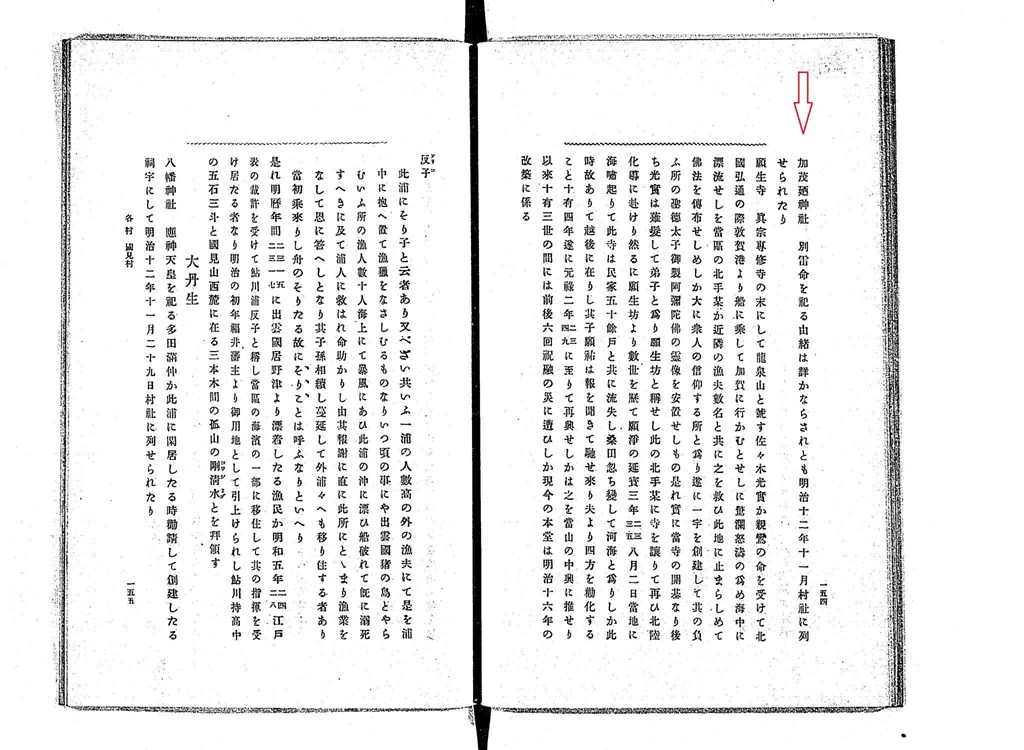 加茂廼神社　別雷命を祀る由緒は詳かならされとも明治十二年十一月村社に列
せられたり
願生寺　真宗専修寺の末にして龍泉山と號す佐々木光實か親鸞の命を受けて北
國弘通の際敦賀港より船に乘して加賀に行かむとせしに驚瀾怒濤の爲め海中に
漂流せしを當區の北手某か近隣の漁夫數名と共に之を救ひ此地に止まらしめて
佛法を傳布せしめしか大に衆人の信仰する所と爲り遂に一宇を創建して其の負
ふ所の聖德太子御製阿彌陀佛の靈像を安置せしもの是れ實に當寺の開基なり後
ち光實は薙髮して弟子と爲り願生坊と稱せし此の北手某に寺を讓りて再ひ北陸
化導に赴けり然るに願生坊より數世を歷て願淨の延寶三年二三三五八月二日當地に
海嘯起りて此寺は民家五十餘戶と共に流失し桑田忽ち變して河海と爲りしか此
時故ありて越後に在りし其子願祐は報を聞きて馳せ來り夫より四方を勸化する
こと十有四年遂に元祿二年二三四九に至りて再興せしかは之を當山の中興に推せり
以來十有三世の間には前後六回祝融の災に遭ひしか現今の本堂は明治十六年の
改築に係る
一五四
反子
此浦にそり子と云者あり又べざい共いふ一浦の人數高の外の漁夫にて是を浦
中に抱へ置て漁獵をなさしむるものなりいつ頃の事にや出雲國猪の島とやら
むいふ所の漁人數十人海上にて暴風にあひ此浦の沖に漂ひ船破れて旣に溺死
すへきに及て浦人に救はれ命助かりし由其報謝に直に此所にとゝまり漁業を
なして恩に答へしとなり其子孫相續し蔓延して外浦々へも移り住する者あり
當初乘來りし舟のそりたる故にそりことは呼ふなりといへり
是れ明曆年間二三一五二三一七に出雲國居野津より漂着したる漁民か明和五年二四二八江戶
表の裁許を受けて鮎川浦反子と稱し當區の海濱の一部に移住して其の指揮を受
け居たる者なり明治の初年福井藩主より御用地として引上けられし鮎川持高中
の五石三斗と國見山西麓に在る三本木間の孤山の剛淸水とを拜領す
大丹生
八幡神社　應神天皇を祀る多田滿仲か此浦に閑居したる時勸請して創建したる
祠宇にして明治十二年十一月二十九日村社に列せられたり
各村　國見村
一五五